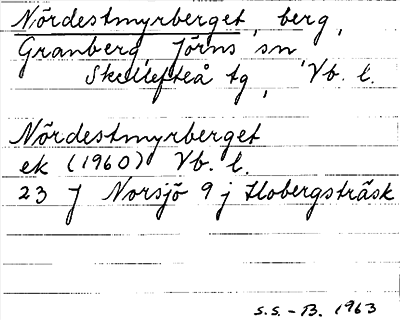 Nördestmyrberget, berg,
Granberg, Jörns sn,
Skellefteå tg, Vb. l.
Nördestmyrberget
ek (1960) Vb. l.
23 J Norsjö 9 j Flobergsträsk
S.S. - B. 1963